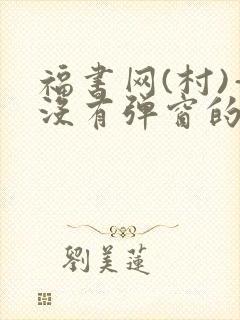 福书网(村)-
没有弹窗的
劉美蓮